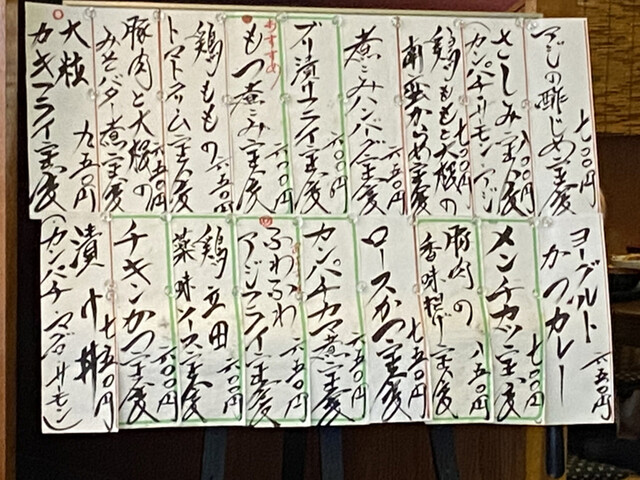 アジの酢じめ定食
七〇〇円
さしみ定食
八〇〇円
(カンパチ サーモン アジ)
鶏ももと大根の
南蛮からめ定食
七〇〇円
煮こみハンバーグ定食
六五〇円
ブリ漬けフライ定食
六〇〇円
おすすめ
もつ煮こみ定食
六〇〇円
鶏ももの
トマトクリーム定食
六五〇円
豚肉と大根の
みそバター煮定食
六五〇円
大粒
カキフライ定食
九五〇円
ヨーグルト
かつカレー
六五〇円
メンチカツ定食
七〇〇円
豚肉の
香味揚げ定食
八五〇円
ロースかつ定食
七五〇円
カンパチカマ煮定食
六五〇円
ふわふわ
アジフライ定食
六五〇円
鶏立田
薬味ソース定食
六〇〇円
チキンかつ定食
六〇〇円
漬け丼
七五〇円
(カンパチ マグロ サーモン)